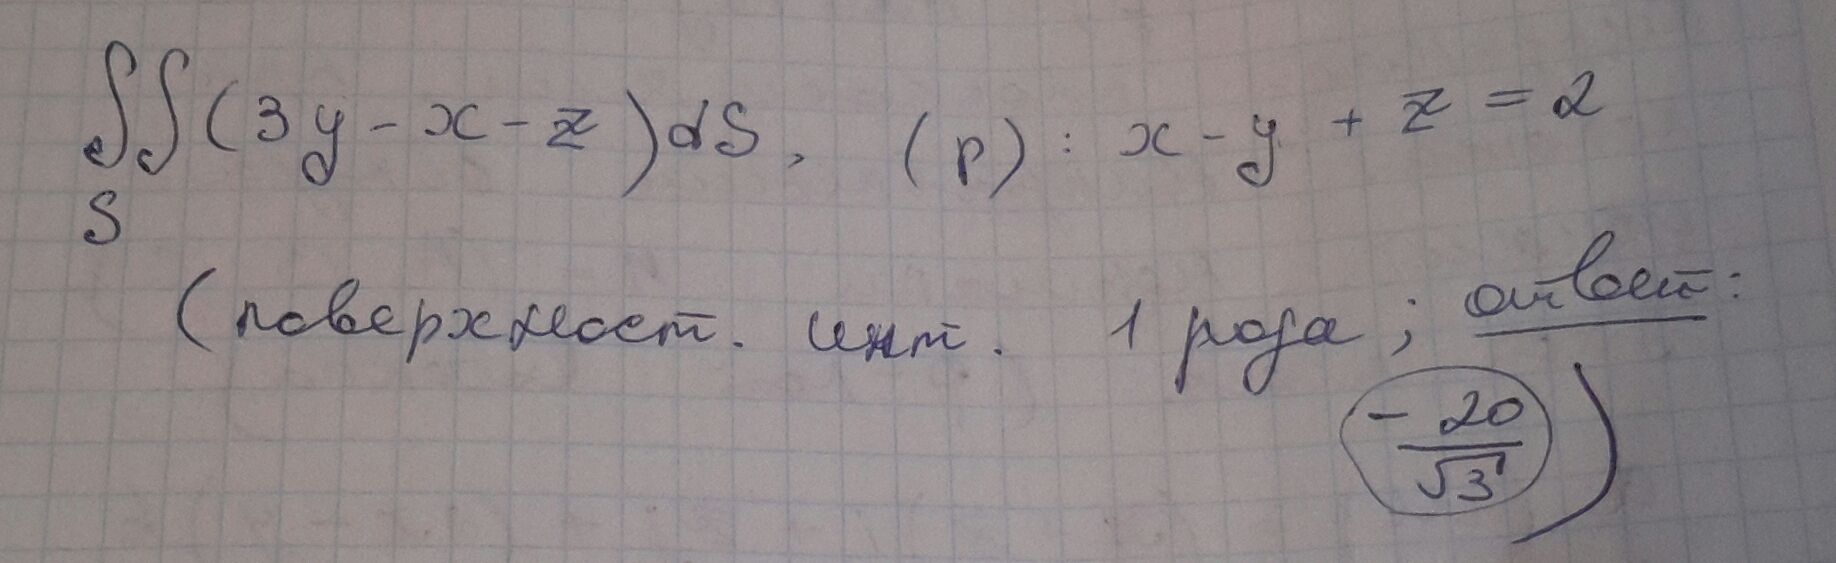 ∬(3y - x - z)dS, (p): x - y + z = 2
S
(поверхност. инт. 1 рода; ответ:
- 20/√3)